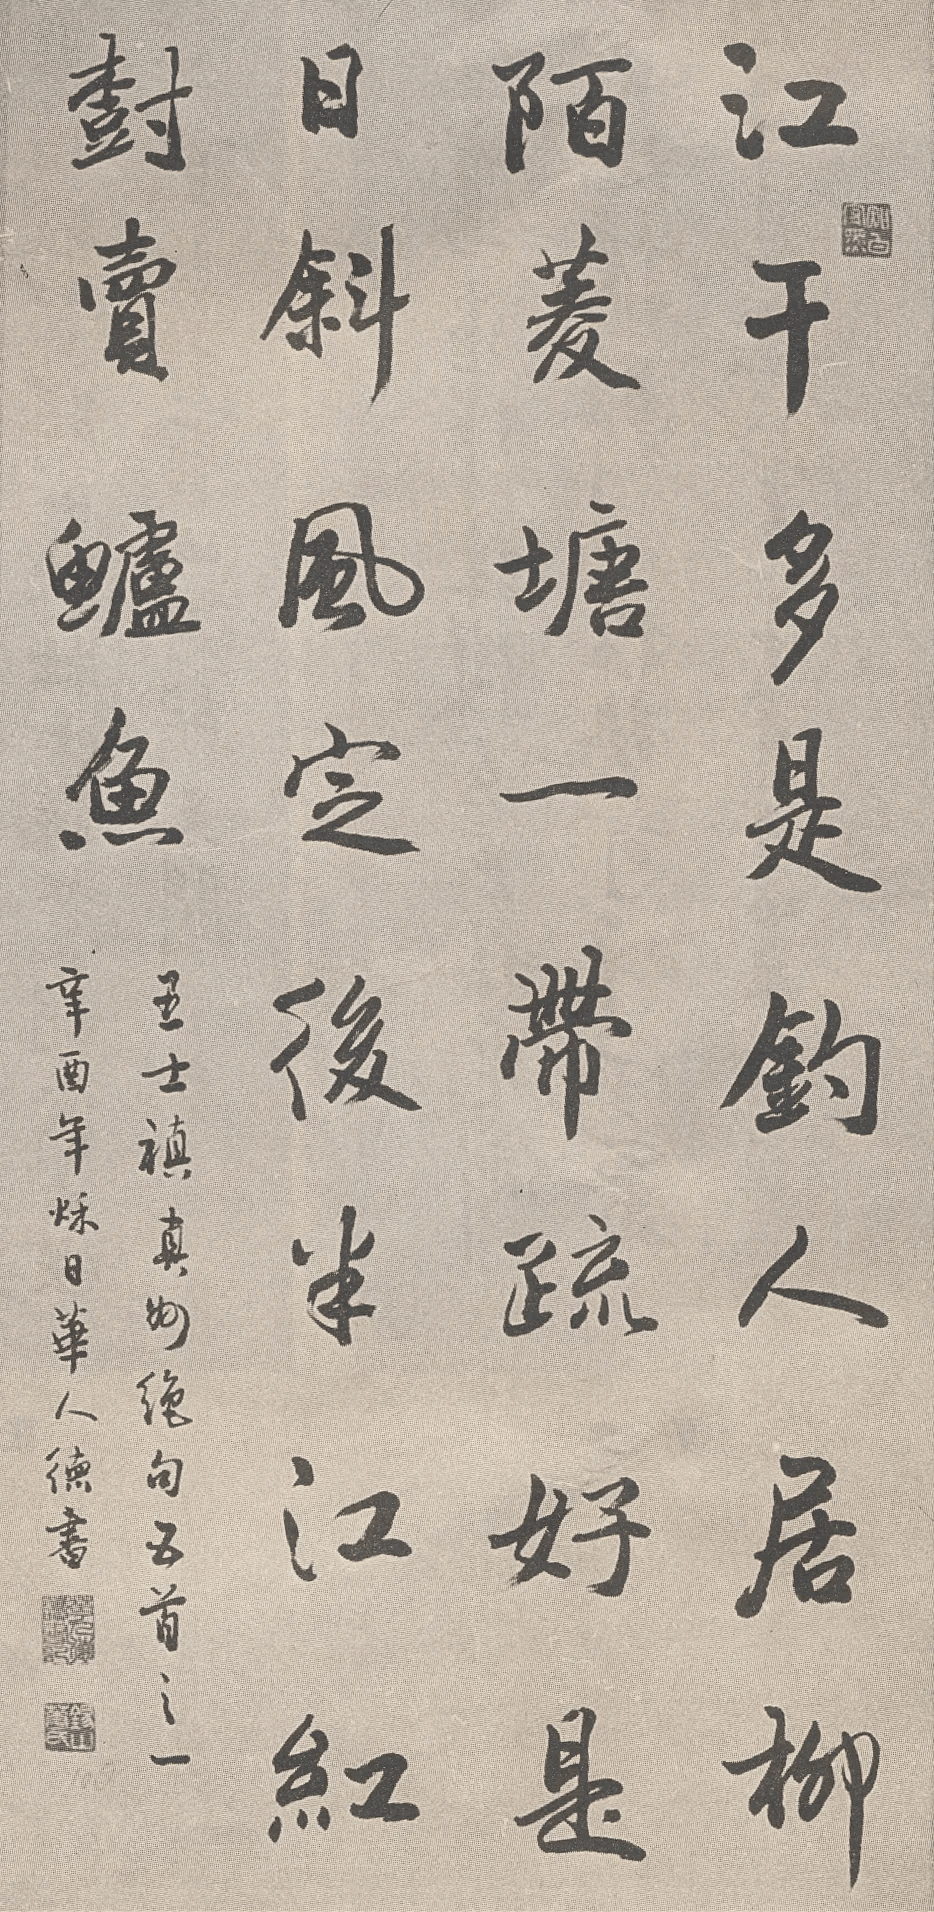 江干多是釣人居柳
陌菱塘一帶疏好是
日斜風定後半江紅
樹賣鱸魚
王士禎真州絕句五首之一
辛酉年秌日華人德書